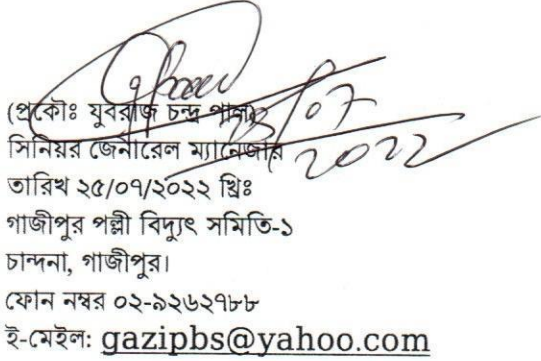 (প্রকৌঃ যুবরাজ চন্দ্র পাল)
সিনিয়র জেনারেল ম্যানেজার
তারিখ ২৫/০৭/২০২২ খ্রিঃ
গাজীপুর পল্লী বিদ্যুৎ সমিতি-১
চান্দনা, গাজীপুর।
ফোন নম্বর ০২-৯২৬২৭৮৮
ই-মেইল: gazipbs@yahoo.com
07
2022